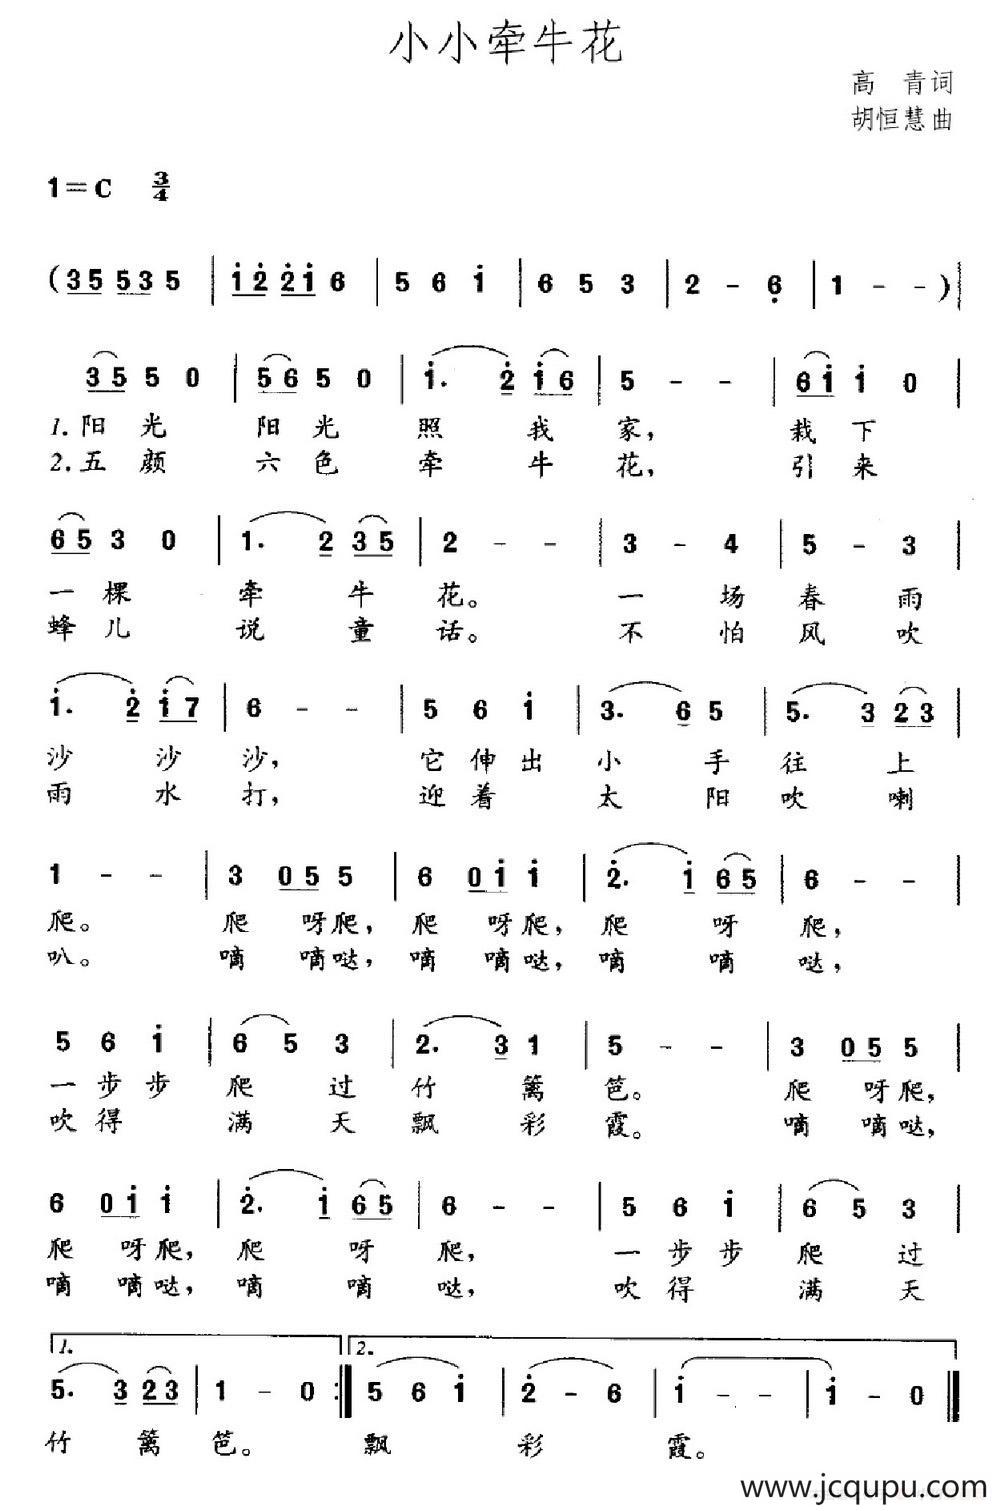 小小牵牛花
高 青词
胡恒慧曲
1=C 3/4
(35 53 5 | i̇2̇ 2̇i̇ 6 | 5 6 i̇ | 6 5 3 | 2 - 6̣ | 1 - - )|
35 5 0 | 56 5 0 | i̇. 2̇ i̇6 | 5 - - | 6i̇ i̇ 0 |
1.阳 光 阳 光 照 我 家, 栽 下
2.五 颜 六 色 牵 牛 花, 引 来
65 3 0 | 1. 2 35 | 2 - - | 3 - 4 | 5 - 3 |
一 棵 牵 牛 花。 一 场 春 雨
蜂 儿 说 童 话。 不 怕 风 吹
i̇. 2̇ i̇7 | 6 - - | 5 6 i̇ | 3. 6 5 | 5. 3 23 |
沙 沙 沙, 它 伸 出 小 手 往 上
雨 水 打, 迎 着 太 阳 吹 喇
1 - - | 3 055 5 | 6 0i̇i̇ i̇ | 2̇. i̇ 65 | 6 - - |
爬。 爬 呀爬, 爬 呀爬, 爬 呀 爬,
叭。 嘀 嘀哒, 嘀 嘀哒, 嘀 嘀 哒,
5 6 i̇ | 6 5 3 | 2. 3 1 | 5 - - | 3 055 5 |
一 步 步 爬 过 竹 篱 笆。 爬 呀爬,
吹 得 满 天 飘 彩 霞。 嘀 嘀哒,
6 0i̇i̇ i̇ | 2̇. i̇ 65 | 6 - - | 5 6 i̇ | 6 5 3 |
爬 呀爬, 爬 呀 爬, 一 步 步 爬 过
嘀 嘀哒, 嘀 嘀 哒, 吹 得 满 天
1. 2.
5. 3 23 | 1 - 0 :‖ 5 6 i̇ | 2̇ - 6 | i̇ - - | i̇ - 0 ‖
竹 篱 笆。 飘 彩 霞。
www.jcqupu.com